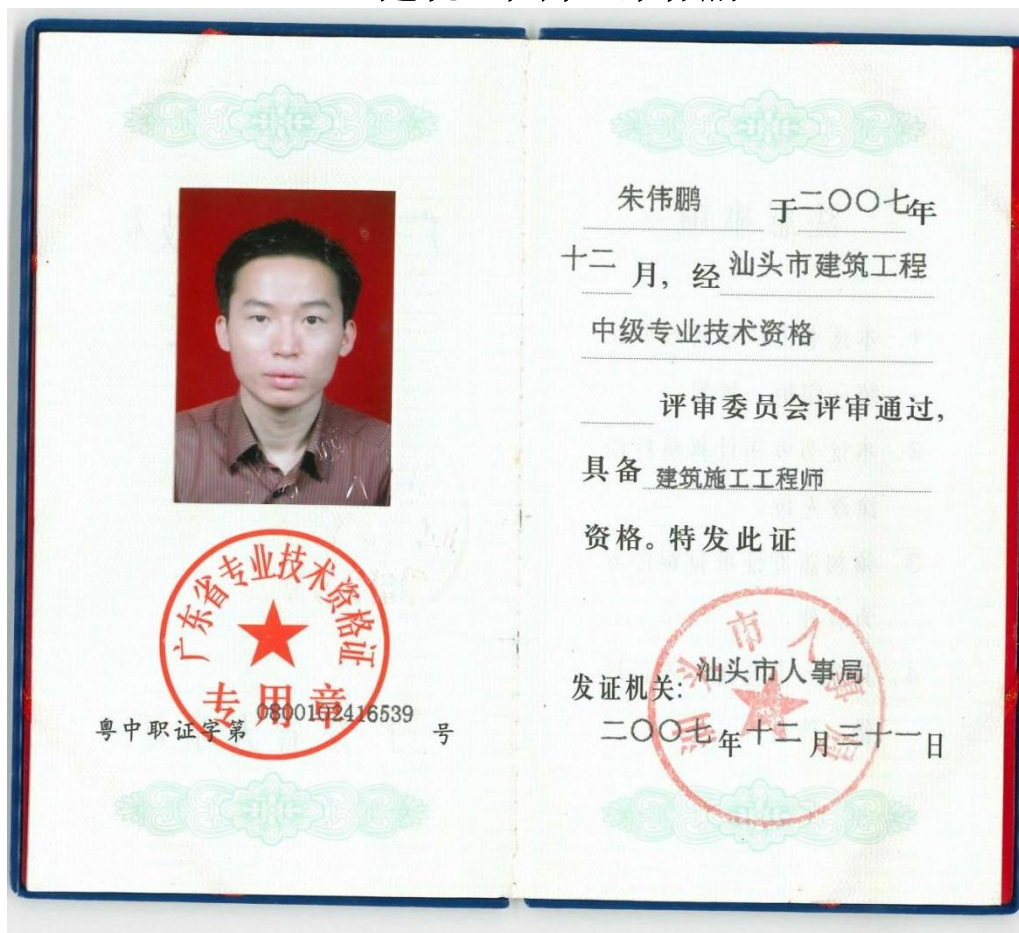 广东省专业技术资格证
专用章
粤中职证字第 0800102416539 号
朱伟鹏 于二〇〇七年
十二月，经汕头市建筑工程
中级专业技术资格
评审委员会评审通过，
具备 建筑施工工程师
资格。特发此证
汕头市人事局
发证机关：汕头市人事局
二〇〇七年十二月三十一日